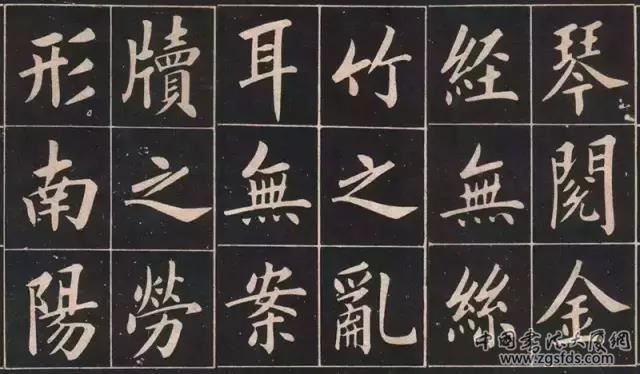 琴閱金
經無絲
竹之亂
耳無案
牘之勞
形南陽
中國書法大展網
www.zgsfds.com